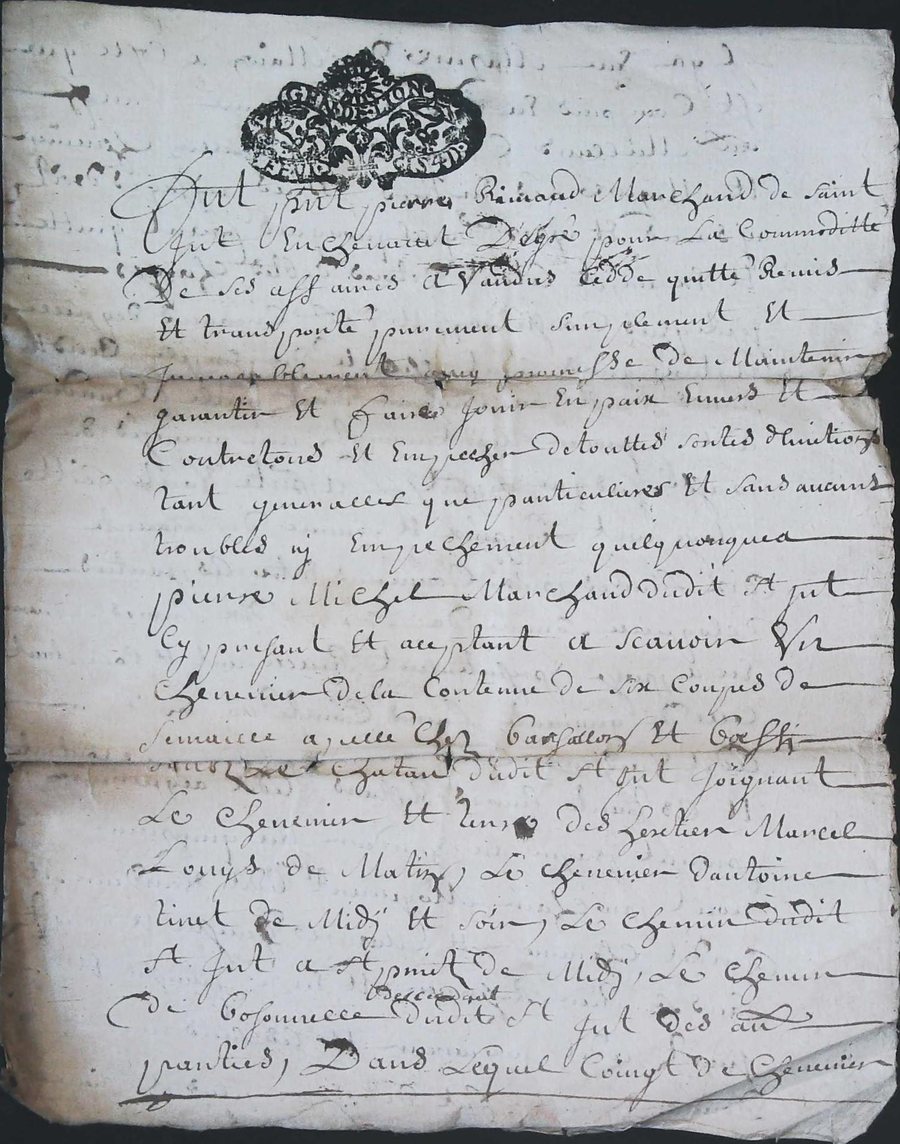 GEN DE LION
FEVIL CIS 4 D
Fut pnt pierre Rimaud Marchand de saint
Jut En chevalet Degré pour La Commoditte
De ses affaires A Vandus Cedde quitte Remis
Et transporté purement simplement Et
promesse de Maintenir
garantir Et faire Jouir En paix Envers Et
Contretous Et Empecher detouttes sortes
tant generalles que particulieres Et sans aucuns
troubles ny Empechement quelquonques a
pierre Michel Marchand dudit St Jut
Cy présant Et aceptant a scavoir Un
Chenevier dela Contenue de six Coupes de
semaille apellé Chez Et
chatau dudit St Jut Joignant
Le Chenevier Et terre des heretier Marcel
Louys de Matin, Le Chenevier dantoine
tinet de Midÿ Et Soir, Le Chemin dudit
St Jut a St de Midÿ, Le Chemin
descendant
de dudit St Jut des aut
parties, Dans Lequel Coingt de Chenevier